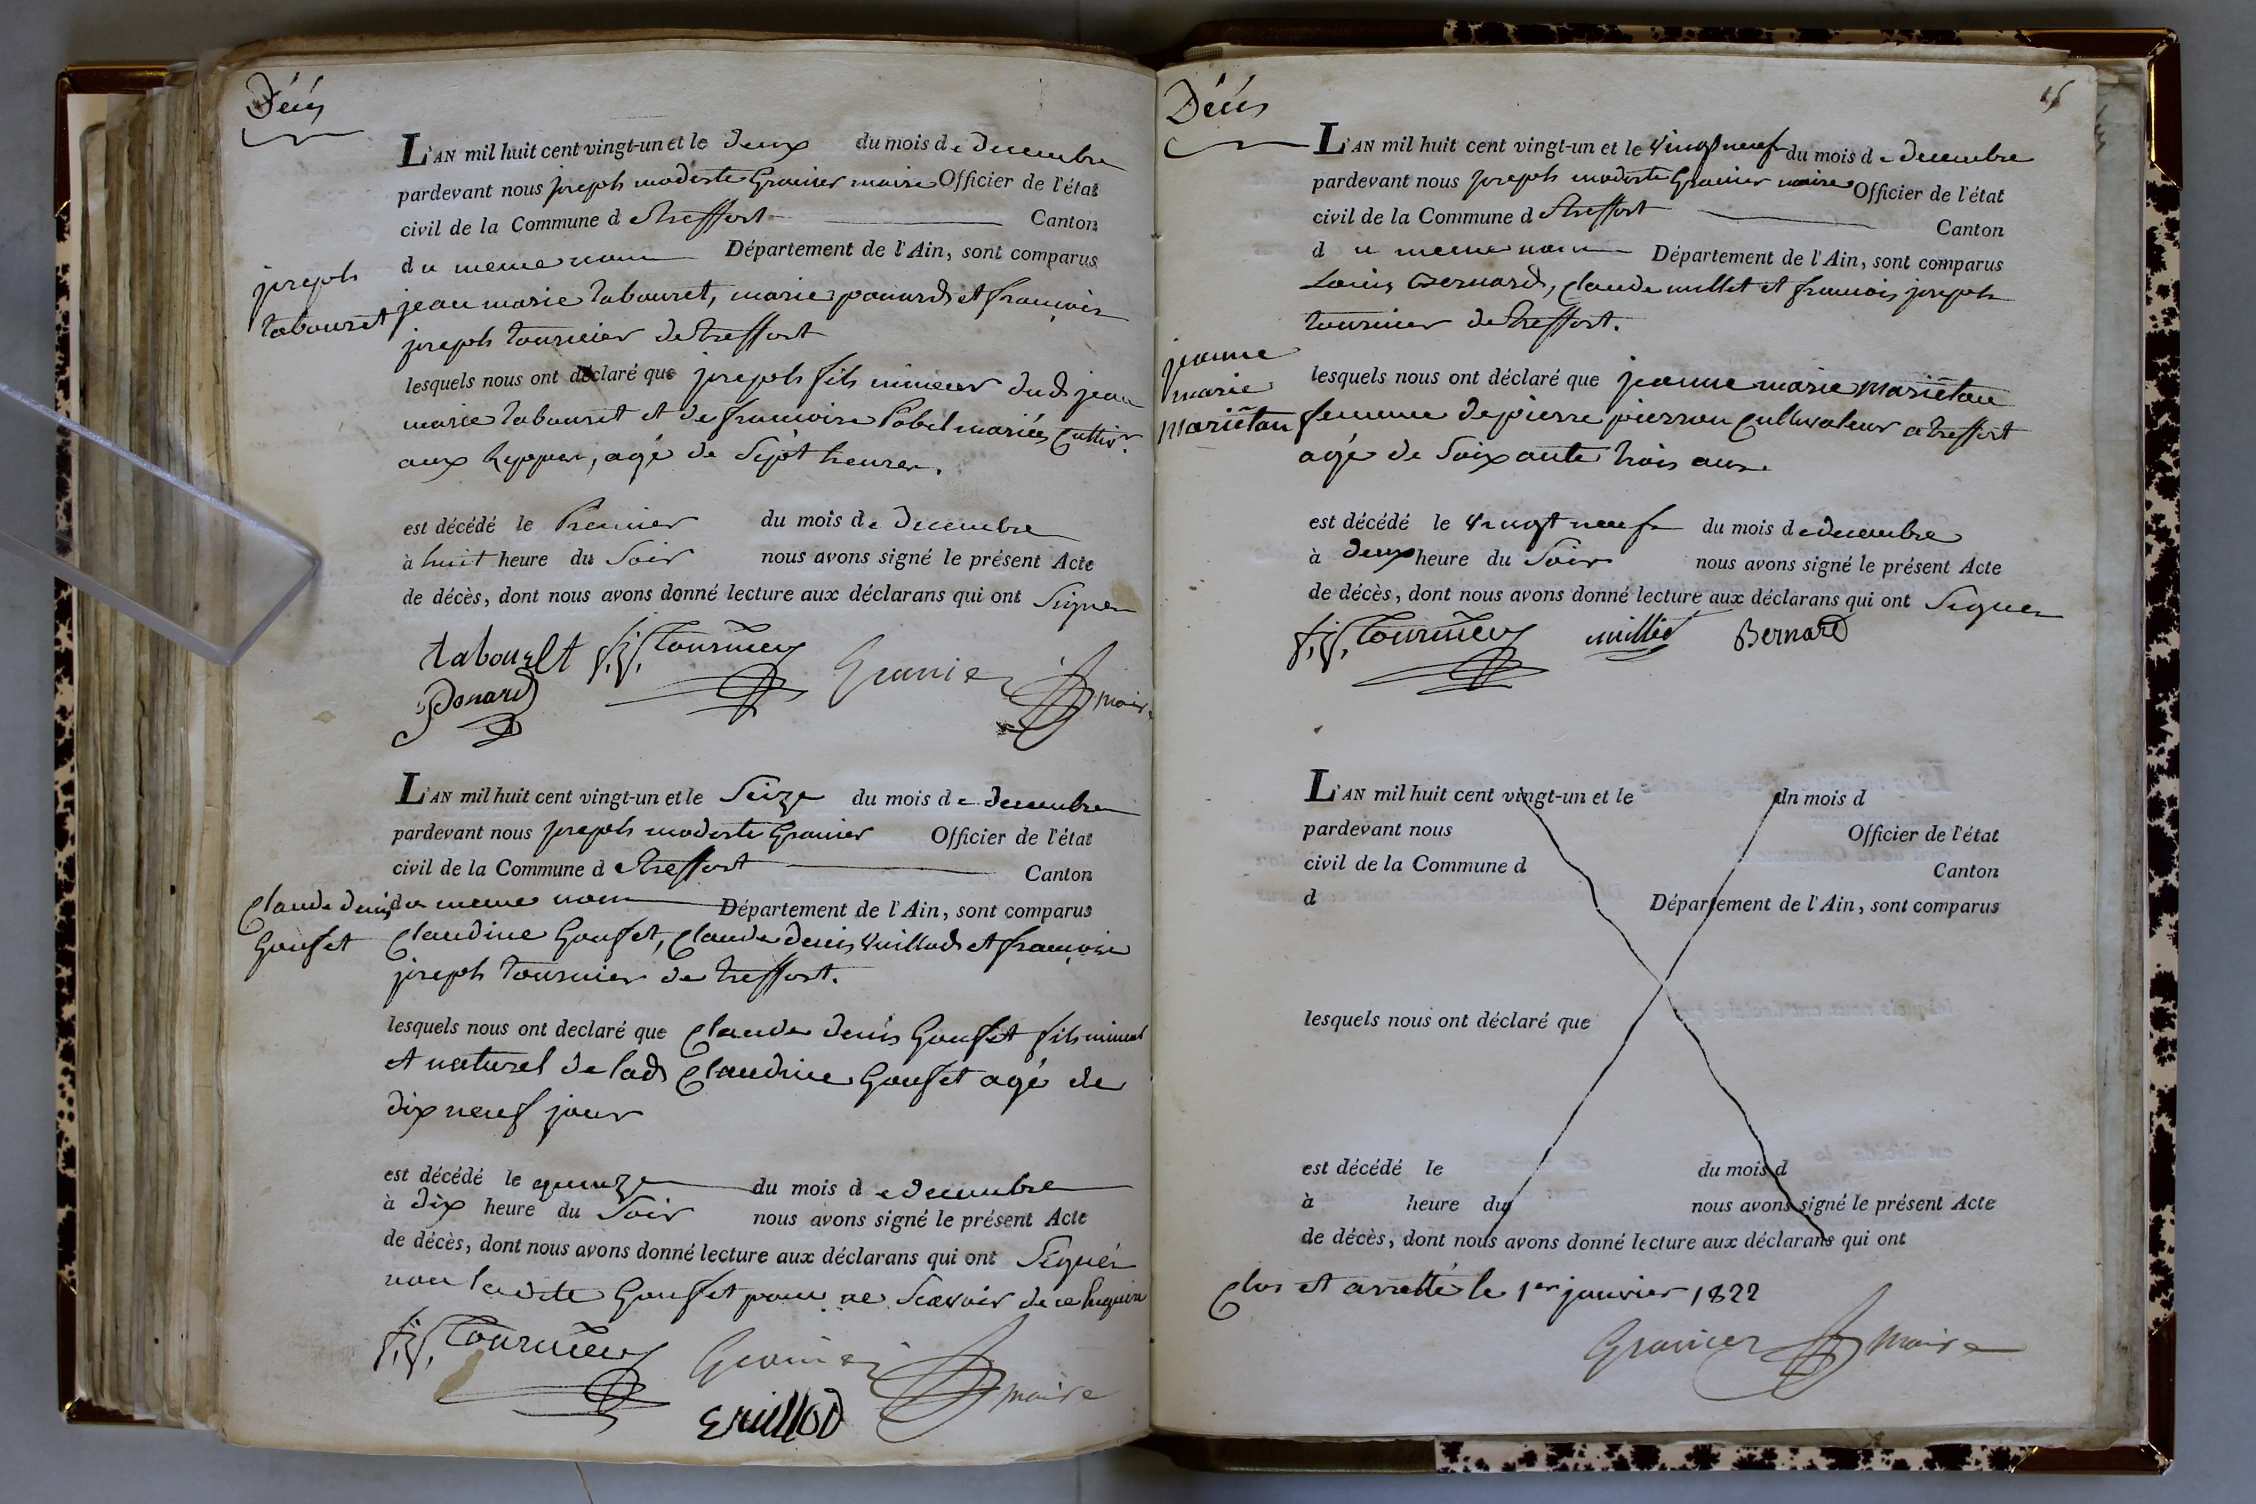 Décès
L'AN mil huit cent vingt-un et le deux du mois de decembre
pardevant nous joseph modeste Granier maire Officier de l'état
civil de la Commune d treffort Canton
du meme nom Département de l'Ain, sont comparus
joseph
tabouret
jean marie tabouret, marie ponard et françois
joseph tournier de treffort
lesquels nous ont déclaré que joseph fils mineur dud jean
marie tabouret et de francoise Pobel mariés Cultivr.
aux , agé de sept heures.
est décédé le Premier du mois de decembre
à huit heure du Soir nous avons signé le présent Acte
de décès, dont nous avons donné lecture aux déclarans qui ont Signer
tabouret f.j. Tournier Granier maire
Ponard
L'AN mil huit cent vingt-un et le Seize du mois de decembre
pardevant nous joseph modeste Granier Officier de l'état
civil de la Commune d treffort Canton
Claude denis
Goufet
du meme nom Département de l'Ain, sont comparus
Claudine Goufet, Claude denis Vuillod et françois
joseph tournier de treffort.
lesquels nous ont declaré que Claude denis Goufet fils mineur
et naturel de lad Claudine Goufet agé de
dix neuf jour
est décédé le quinze du mois d e decembre
à dix heure du Soir nous avons signé le présent Acte
de décès, dont nous avons donné lecture aux déclarans qui ont Signér
non ladite Goufet pour ne Scavoir de ce Requise
f.j. Tournier Granier maire
Vuillod
Décès
L'AN mil huit cent vingt-un et le Vingt neuf du mois de decembre
pardevant nous joseph modeste Granier maire Officier de l'état
civil de la Commune d treffort Canton
d u meme nom Département de l'Ain, sont comparus
Louis Bernard, Claude millet et francois joseph
tournier de treffort.
jeanne
marie
Mariétan
lesquels nous ont déclaré que jeanne marie Mariétan
femme de pierre pierron Cultivateur a treffort
agé de Soixante trois ans.
est décédé le Vingt neuf du mois de decembre
à deux heure du Soir nous avons signé le présent Acte
de décès, dont nous avons donné lecture aux déclarans qui ont Signer
f.j. Tournier millet Bernard
L'AN mil huit cent vingt-un et le dn mois d
pardevant nous Officier de l'état
civil de la Commune d Canton
d Département de l'Ain, sont comparus
lesquels nous ont déclaré que
est décédé le du mois d
à heure du nous avons signé le présent Acte
de décès, dont nous avons donné lecture aux déclarans qui ont
Clos et arretté le 1er janvier 1822
Granier maire